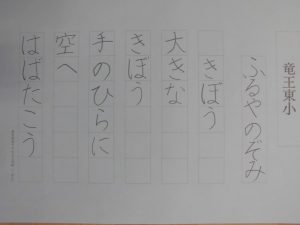 竜王東小
ふるやのぞみ
きぼう
大きな
きぼう
手のひらに
空へ
はばたこう